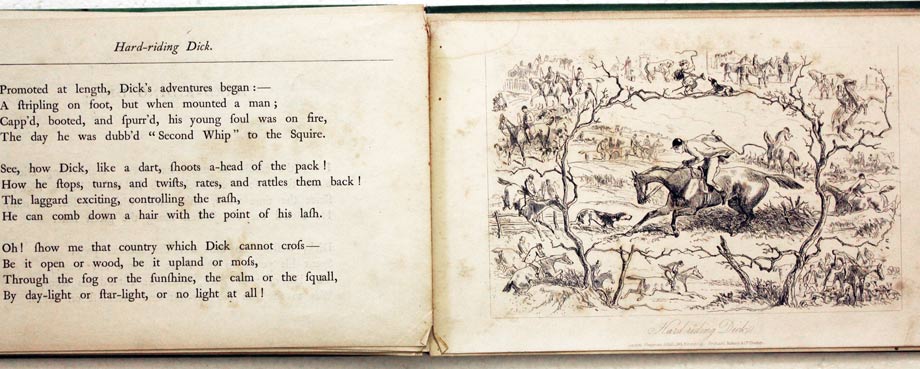 Hard-riding Dick.
Promoted at length, Dick's adventures began:—
A ſtripling on foot, but when mounted a man;
Capp'd, booted, and ſpurr'd, his young ſoul was on fire,
The day he was dubb'd "Second Whip" to the Squire.
See, how Dick, like a dart, ſhoots a-head of the pack!
How he ſtops, turns, and twiſts, rates, and rattles them back!
The laggard exciting, controlling the raſh,
He can comb down a hair with the point of his laſh.
Oh! ſhow me that country which Dick cannot croſs—
Be it open or wood, be it upland or moſs,
Through the fog or the ſunſhine, the calm or the ſquall,
By day-light or ſtar-light, or no light at all!
Hard riding Dick